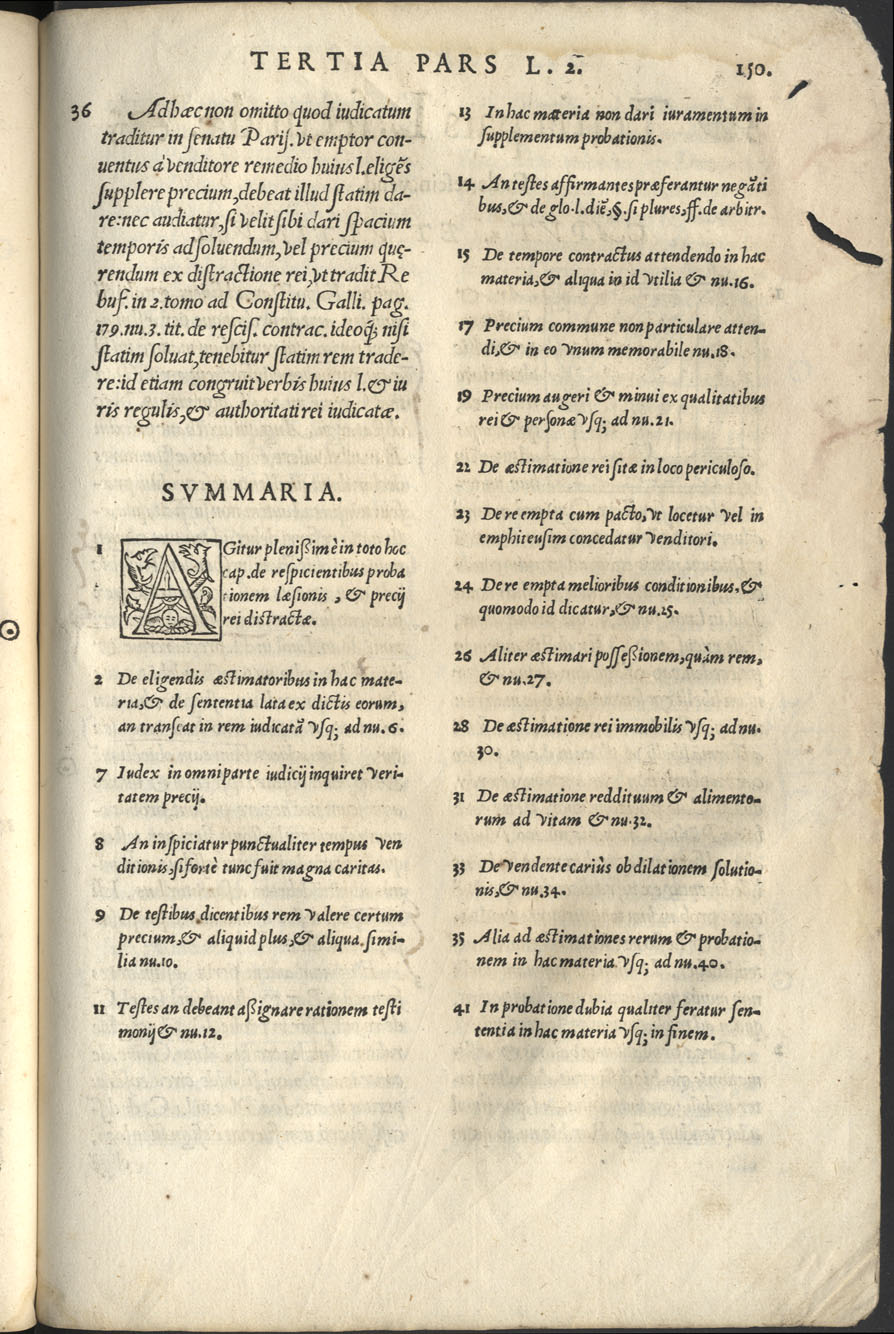 TERTIA PARS L. 2. 150.
36 Ad hæc non omitto quod iudicatum
traditur in ſenatu Pariſ. vt emptor con-
uentus à venditore remedio huius l. eligẽs
ſupplere precium, debeat illud ſtatim da-
re: nec audiatur, ſi velit ſibi dari ſpacium
temporis ad ſoluendum, vel precium quę-
rendum ex diſtractione rei, vt tradit Re
buf. in 2. tomo ad Conſtitu. Galli. pag.
179. nu. 3. tit. de reſciſ. contrac. ideoq́; niſi
ſtatim ſoluat, tenebitur ſtatim rem trade-
re: id etiam congruit verbis huius l. & iu
ris regulis, & authoritati rei iudicatæ.
SVMMARIA.
1 AGitur pleniſsimè in toto hoc
cap. de reſpicientibus proba
tionem læſionis, & precij
rei diſtractæ.
2 De eligendis æſtimatoribus in hac mate-
ria, & de ſententia lata ex dictis eorum,
an tranſeat in rem iudicatā vſq; ad nu. 6.
7 Iudex in omni parte iudicij inquiret veri-
tatem precij.
8 An inſpiciatur punctualiter tempus ven
ditionis, ſi fortè tunc fuit magna caritas.
9 De teſtibus dicentibus rem valere certum
precium, & aliquid plus, & aliqua ſimi-
lia nu. 10.
11 Teſtes an debeant aſsignare rationem teſti
monij & nu. 12.
13 In hac materia non dari iuramentum in
ſupplementum probationis.
14 An teſtes affirmantes præferantur negāti
bus, & de glo. l. diẽ, §. ſi plures, ff. de arbitr.
15 De tempore contractus attendendo in hac
materia, & aliqua in id vtilia & nu. 16.
17 Precium commune non particulare atten-
di, & in eo vnum memorabile nu. 18.
19 Precium augeri & minui ex qualitatibus
rei & perſonæ vſq; ad nu. 21.
22 De æſtimatione rei ſitæ in loco periculoſo.
23 De re empta cum pacto, vt locetur vel in
emphiteuſim concedatur venditori.
24 De re empta melioribus conditionibus, &
quomodo id dicatur, & nu. 25.
26 Aliter æſtimari poſſeſsionem, quàm rem,
& nu. 27.
28 De æſtimatione rei immobilis vſq; ad nu.
30.
31 De æſtimatione reddituum & alimento-
rum ad vitam & nu. 32.
33 De vendente cariùs ob dilationem ſolutio-
nis, & nu. 34.
35 Alia ad æſtimationes rerum & probatio-
nem in hac materia vſq; ad nu. 40.
41 In probatione dubia qualiter feratur ſen-
tentia in hac materia vſq; in finem.